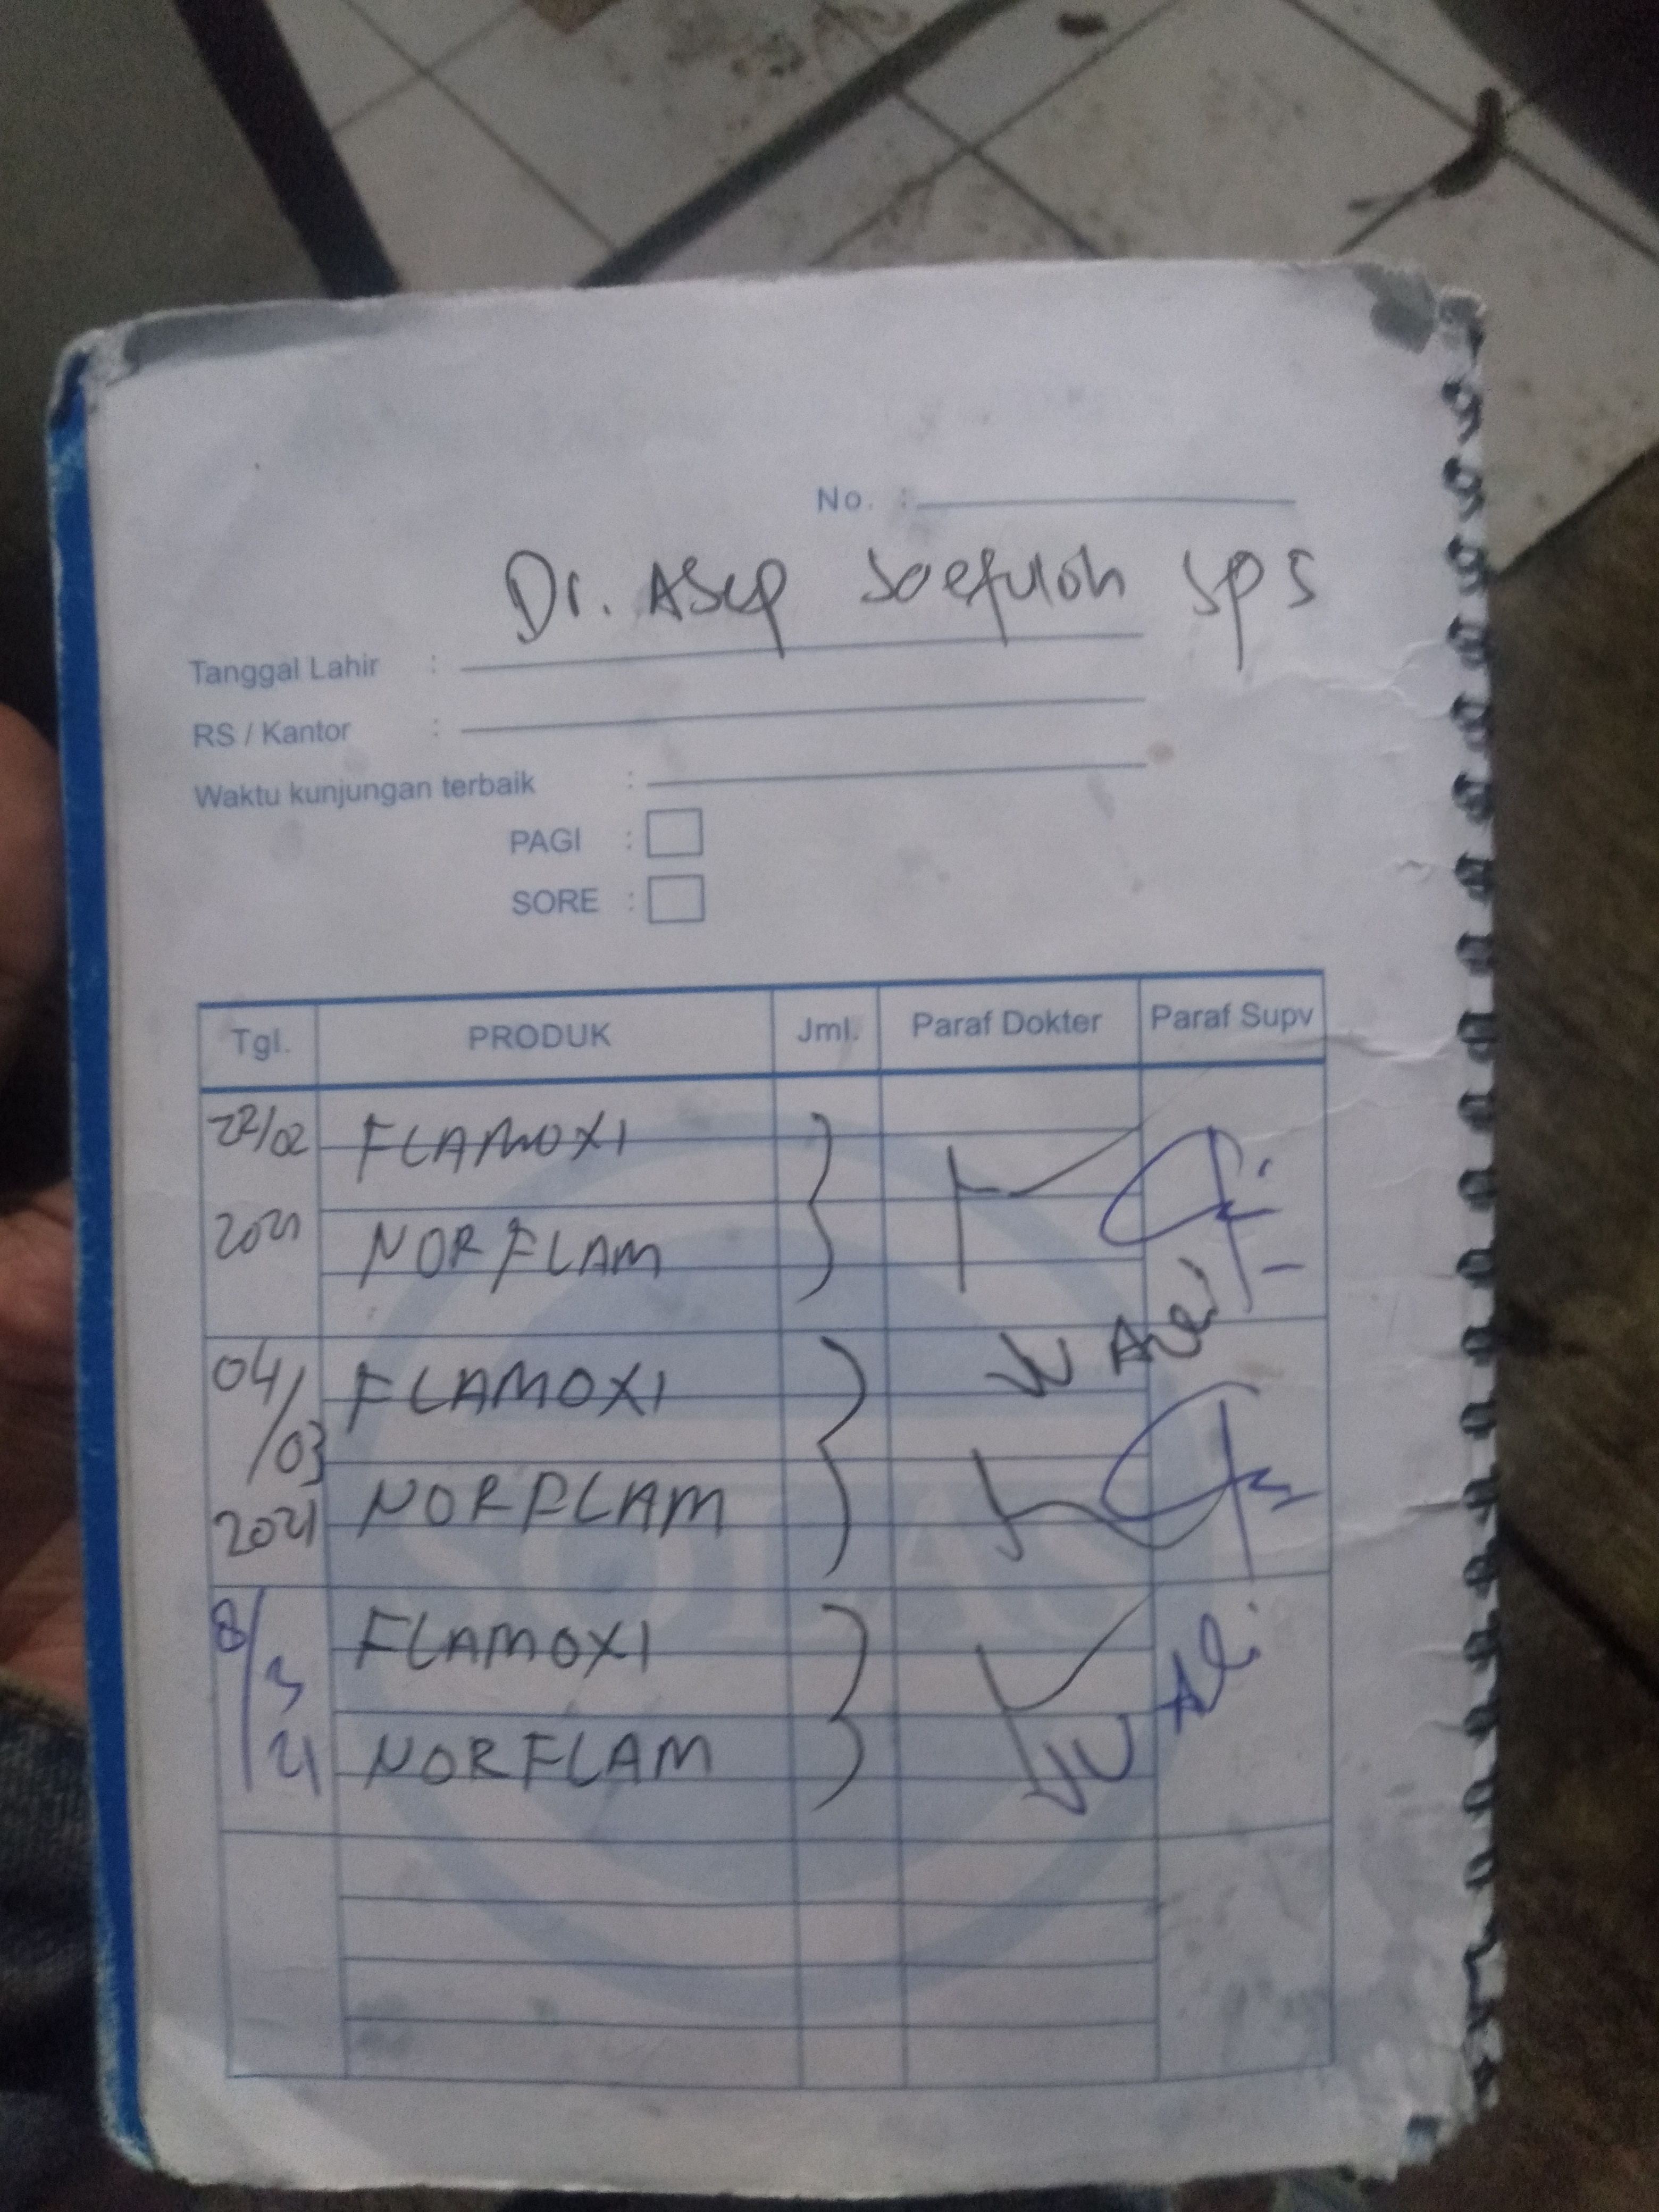 No. :
Dr. Asep Soefuloh SpS
Tanggal Lahir :
RS / Kantor :
Waktu kunjungan terbaik :
PAGI :
SORE :
Tgl. PRODUK Jml. Paraf Dokter Paraf Supv
22/02 FLAMOXI
2021 NORFLAM
04/03 FLAMOXI
2021 NORFLAM
8/3 FLAMOXI
21 NORFLAM
SOLAS